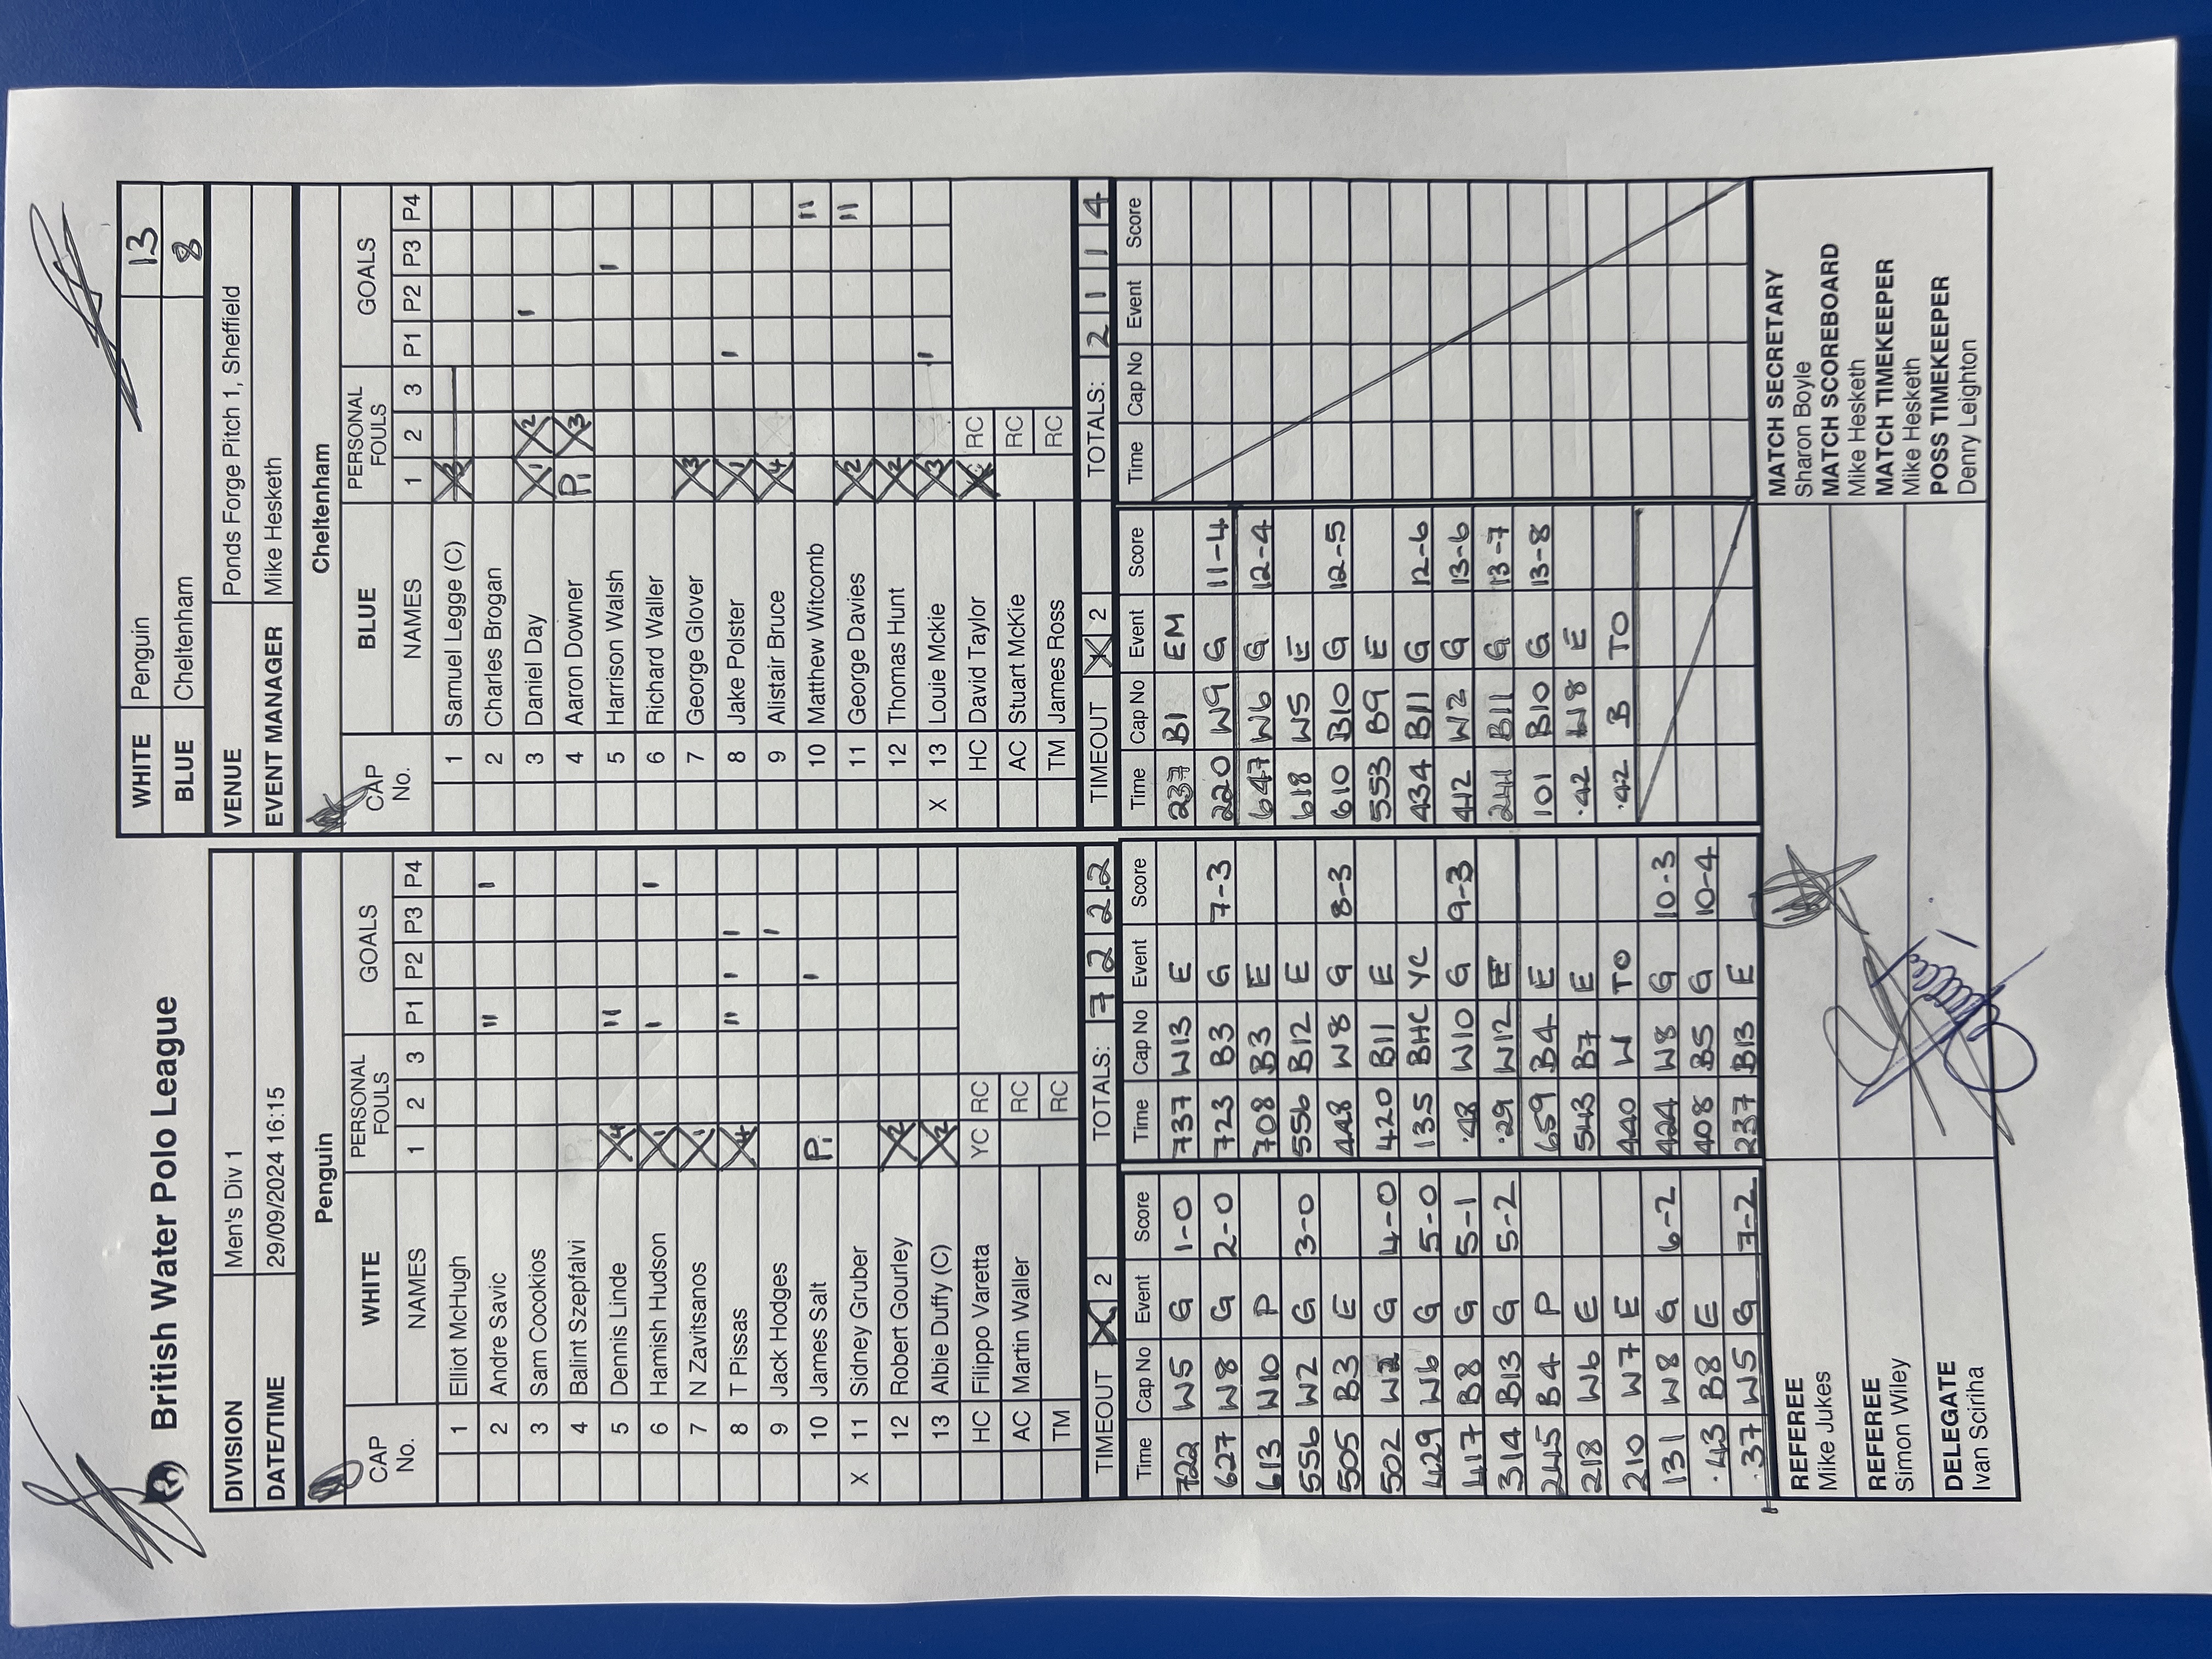 British Water Polo League
WHITE Penguin 13
BLUE Cheltenham 8
DIVISION Men's Div 1
DATE/TIME 29/09/2024 16:15
VENUE Ponds Forge Pitch 1, Sheffield
EVENT MANAGER Mike Hesketh
Penguin
CAP No. WHITE NAMES PERSONAL FOULS 1 2 3 GOALS P1 P2 P3 P4
1 Elliot McHugh
2 Andre Savic " I
3 Sam Cocokios
4 Balint Szepfalvi
5 Dennis Linde X4 "
6 Hamish Hudson X1 I I
7 N Zavitsanos X1
8 T Pissas X4 " I I
9 Jack Hodges I
10 James Salt P1 I
X 11 Sidney Gruber
12 Robert Gourley X2
13 Albie Duffy (C) X2
HC Filippo Varetta YC RC
AC Martin Waller RC
TM RC
TIMEOUT X 2 TOTALS: 7 2 2 2
Cheltenham
CAP No. BLUE NAMES PERSONAL FOULS 1 2 3 GOALS P1 P2 P3 P4
1 Samuel Legge (C) X3
2 Charles Brogan
3 Daniel Day X1 X2 I
4 Aaron Downer P1 X3
5 Harrison Walsh I
6 Richard Waller
7 George Glover X3
8 Jake Polster X1 I
9 Alistair Bruce X4
10 Matthew Witcomb "
11 George Davies X2 "
12 Thomas Hunt X2
X 13 Louie Mckie X3 I
HC David Taylor X RC
AC Stuart McKie RC
TM James Ross RC
TIMEOUT X 2 TOTALS: 2 1 1 4
Time Cap No Event Score
722 W5 G 1-0
627 W8 G 2-0
613 W10 P
556 W2 G 3-0
505 B3 E
502 W2 G 4-0
429 W6 G 5-0
417 B8 G 5-1
314 B13 G 5-2
245 B4 P
218 W6 E
210 W7 E
131 W8 G 6-2
.43 B8 E
.37 W5 G 7-2
Time Cap No Event Score
737 W13 E
723 B3 G 7-3
708 B3 E
556 B12 E
448 W8 G 8-3
420 B11 E
135 BHC YC
.48 W10 G 9-3
.29 W12 E
659 B4 E
543 B7 E
440 W TO
424 W8 G 10-3
408 B5 G 10-4
237 B13 E
Time Cap No Event Score
237 B1 EM
220 W9 G 11-4
647 W6 G 12-4
618 W5 E
610 B10 G 12-5
553 B9 E
434 B11 G 12-6
412 W2 G 13-6
241 B11 G 13-7
101 B10 G 13-8
.42 W8 E
.42 B TO
Time Cap No Event Score
REFEREE
Mike Jukes
REFEREE
Simon Wiley
DELEGATE
Ivan Sciriha
MATCH SECRETARY
Sharon Boyle
MATCH SCOREBOARD
Mike Hesketh
MATCH TIMEKEEPER
Mike Hesketh
POSS TIMEKEEPER
Denry Leighton